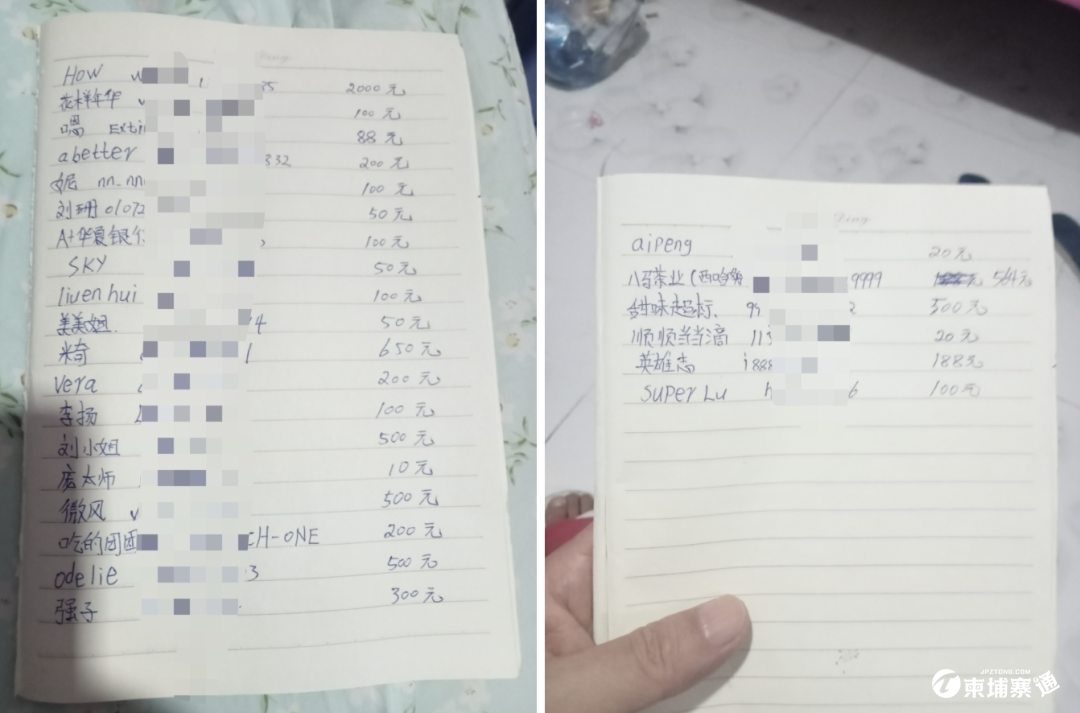 How 35 2000元
花样年华 100元
嗯 Exti 88元
abetter 332 200元
妮 nn_nn 100元
刘珊 01072 50元
A+华夏银行 100元
SKY 50元
liuenhui 100元
美美姐 4 50元
米奇 1 650元
vera 200元
李扬 100元
刘小姐 500元
庞太师 10元
微风 500元
吃的团团 CH-ONE 200元
odelie 3 500元
强子 300元
aipeng 20元
八马茶业(西哈 9999 564元
甜味超标. 99 2 500元
顺顺当当滴 113 20元
英雄志 i888 188元
super Lu h 6 100元
JPZTONG.COM
柬埔寨通